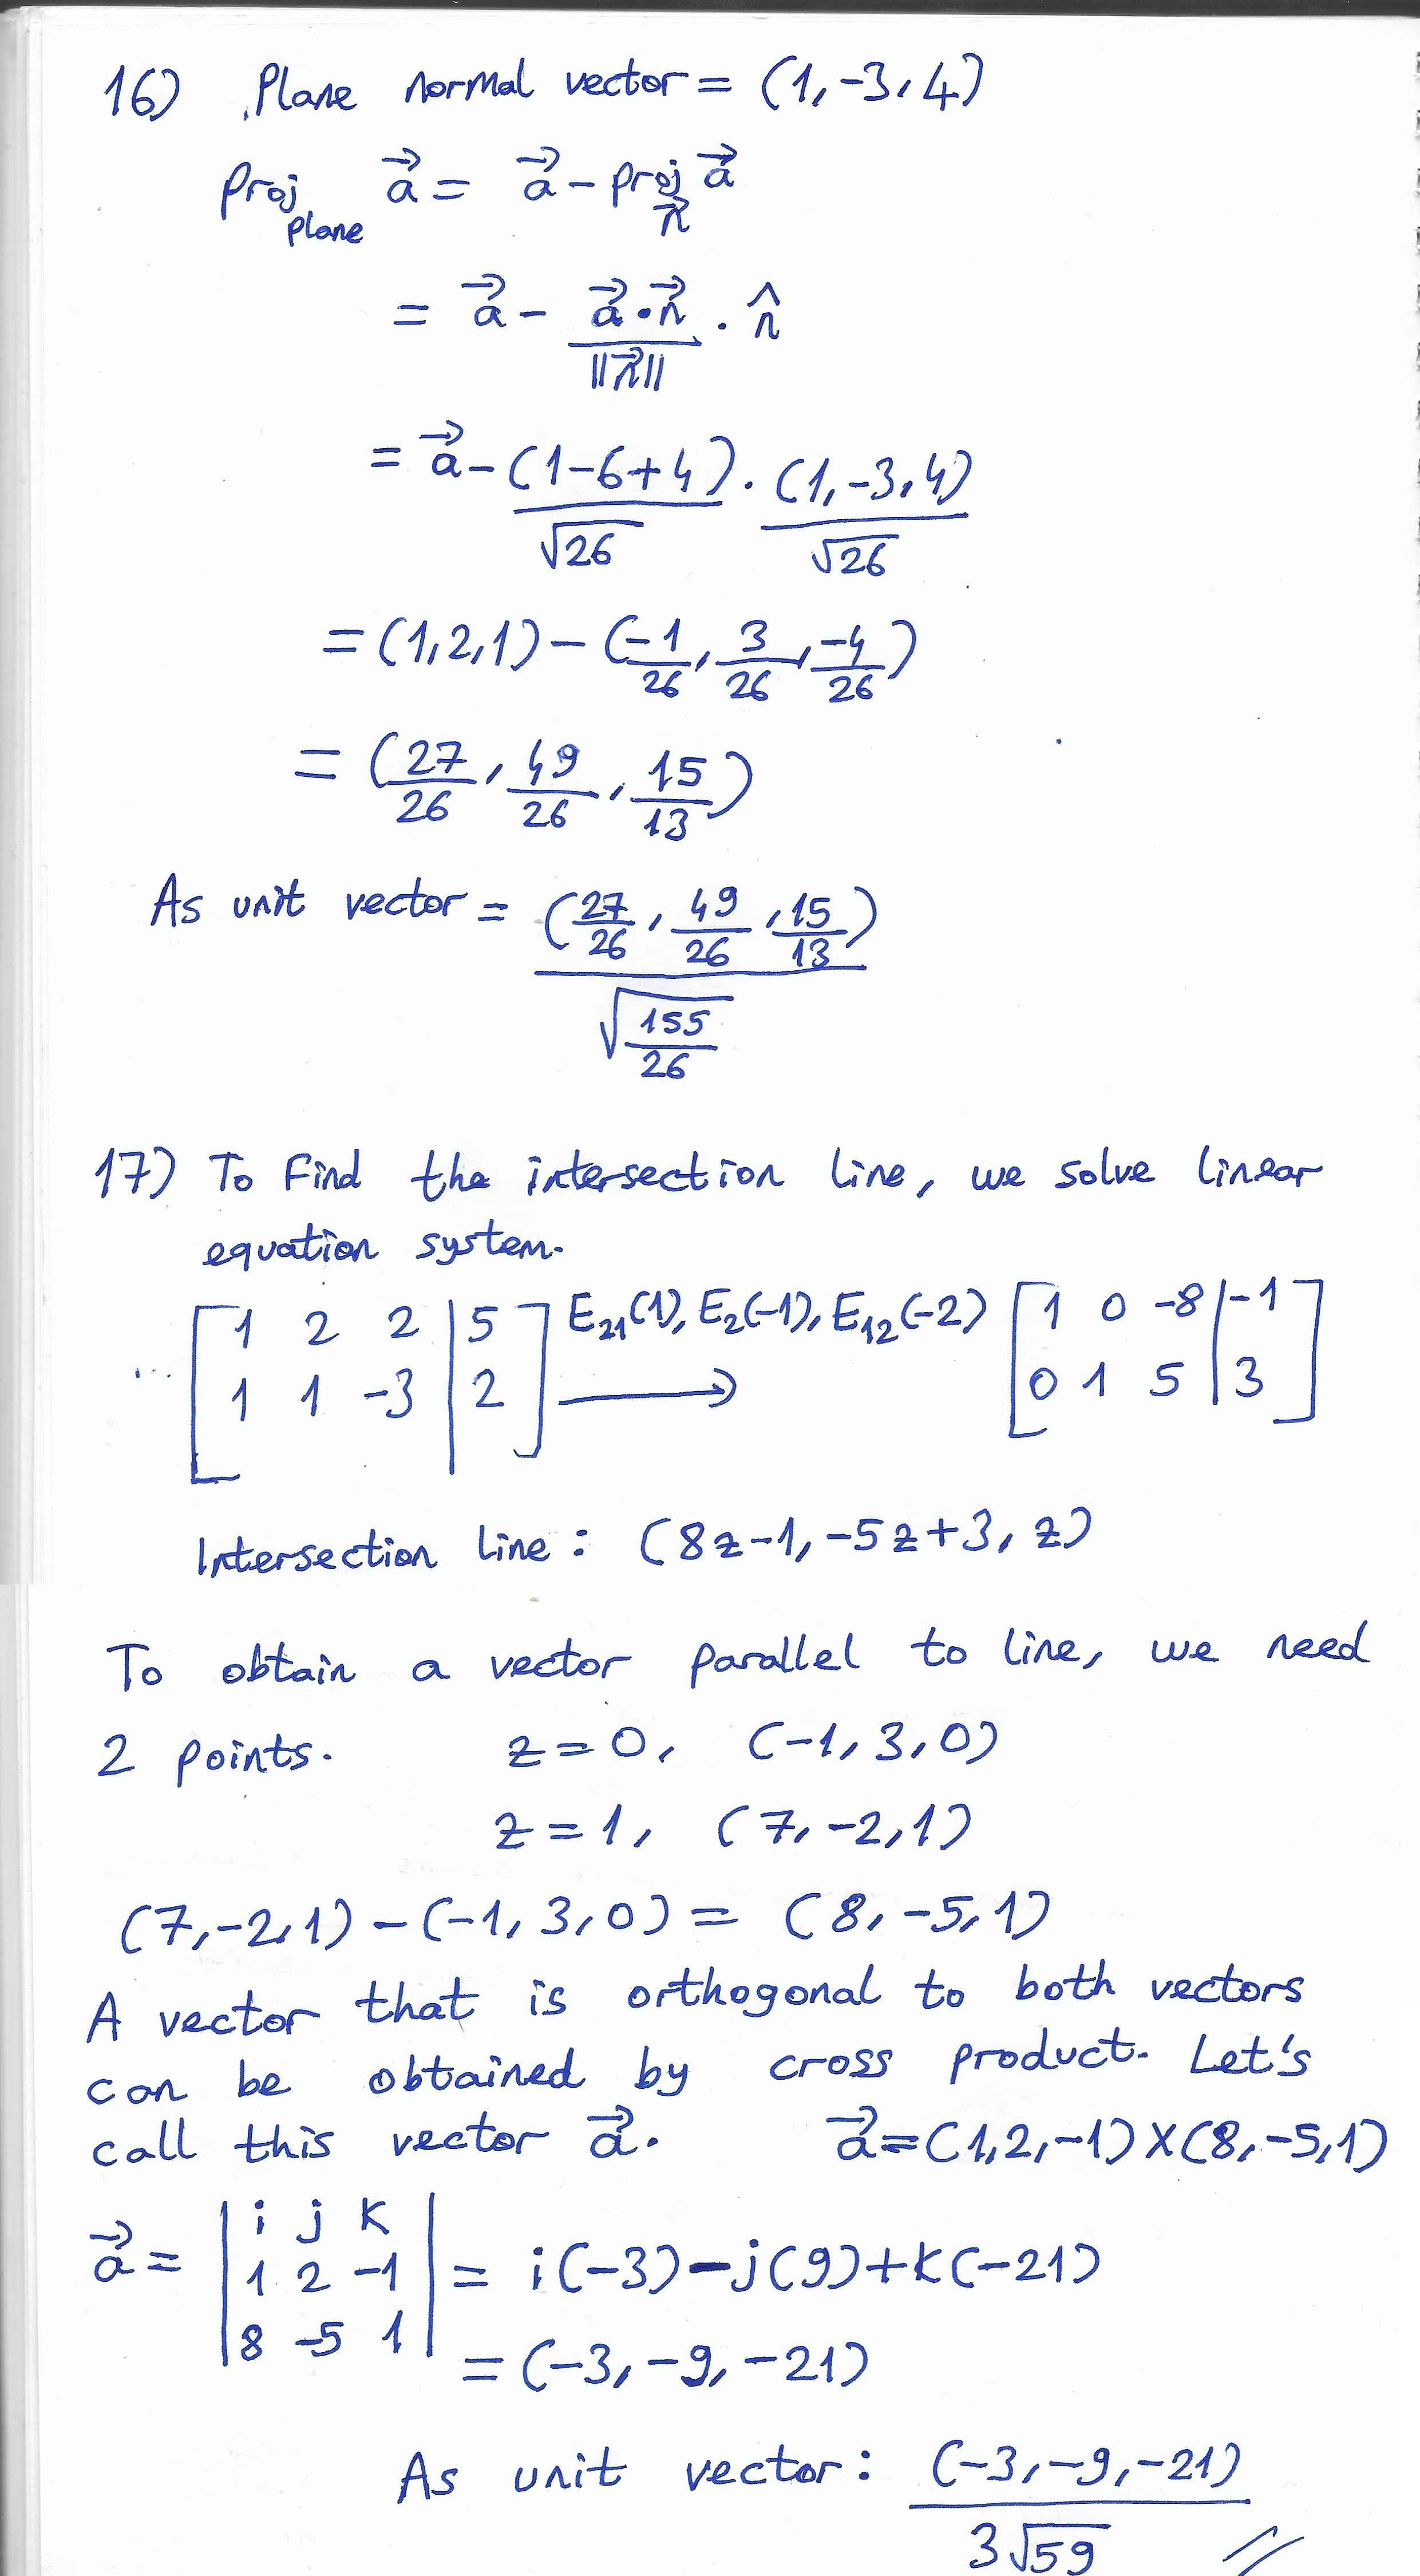 16) Plane normal vector = (1, -3, 4)
Proj_plane a⃗ = a⃗ - proj_n⃗ a⃗
= a⃗ - (a⃗ · n⃗)/||n⃗|| . n̂
= a⃗ - (1-6+4)/√26 . (1, -3, 4)/√26
= (1,2,1) - (-1/26, 3/26, -4/26)
= (27/26, 49/26, 15/13)
As unit vector = (27/26, 49/26, 15/13)/√(155/26)
17) To find the intersection line, we solve linear
equation system.
[1 2 2 | 5] E₂₁(1), E₂(-1), E₁₂(-2) [1 0 -8 | -1]
[1 1 -3 | 2] ⟶ [0 1 5 | 3]
Intersection line : (8z-1, -5z+3, z)
To obtain a vector parallel to line, we need
2 points. z=0, (-1, 3, 0)
z=1, (7, -2, 1)
(7, -2, 1) - (-1, 3, 0) = (8, -5, 1)
A vector that is orthogonal to both vectors
can be obtained by cross product. Let's
call this vector a⃗. a⃗ = (1,2,-1) X (8,-5,1)
a⃗ = | i j k ; 1 2 -1 ; 8 -5 1 | = i(-3) - j(9) + k(-21)
= (-3, -9, -21)
As unit vector : (-3, -9, -21)/3√59 //